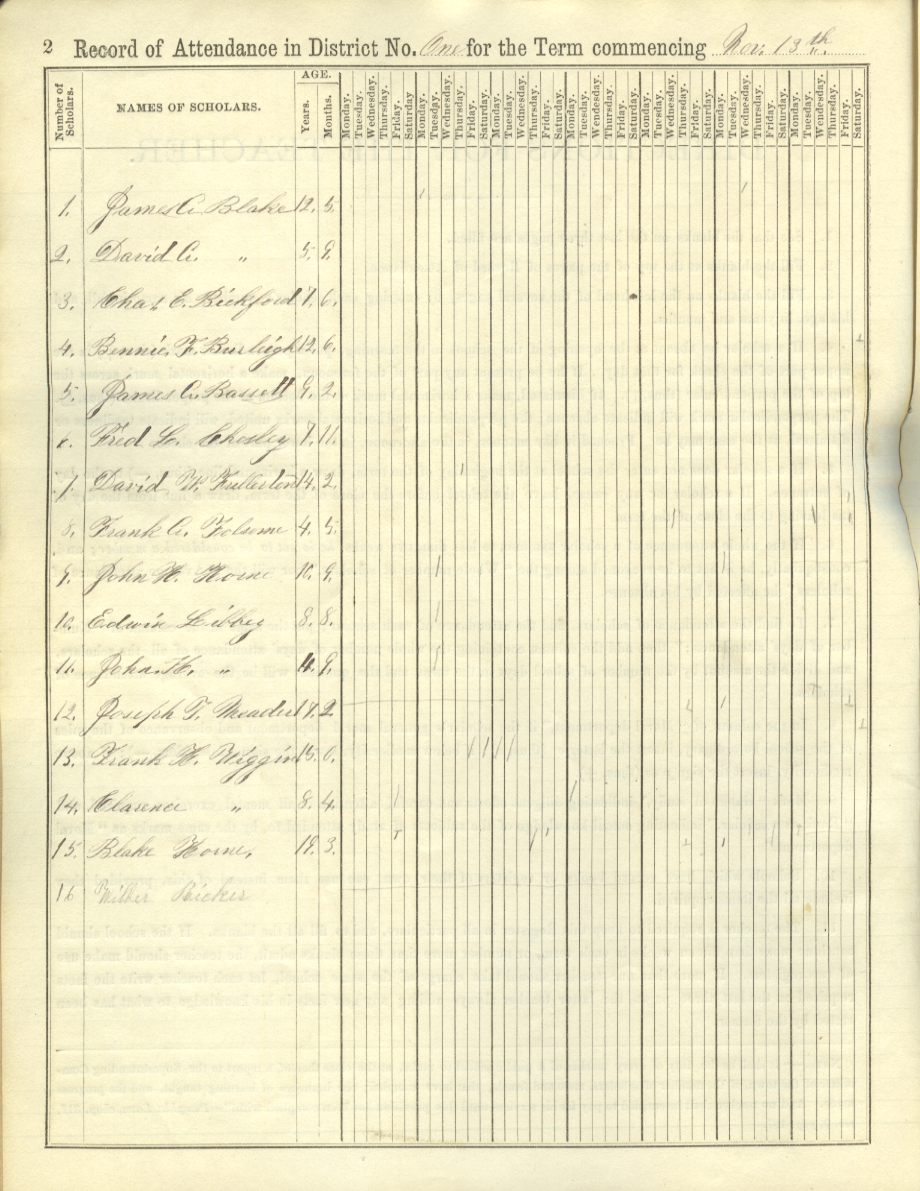 2 Record of Attendance in District No. One for the Term commencing Nov. 13th
Number of Scholars. NAMES OF SCHOLARS. AGE. Years. Months. Monday. Tuesday. Wednesday. Thursday. Friday. Saturday Monday. Tuesday. Wednesday. Thursday. Friday. Saturday. Monday. Tuesday. Wednesday. Thursday. Friday. Saturday. Monday. Tuesday. Wednesday. Thursday. Friday. Saturday. Monday. Tuesday. Wednesday. Thursday. Friday. Saturday. Monday. Tuesday. Wednesday. Thursday. Friday. Saturday. Monday. Tuesday. Wednesday. Thursday. Friday. Saturday.
1. James C. Blake 12. 5.
2. David C. " 5. 9.
3. Chas. E. Bickford 7. 6.
4. Bennie F. Burleigh 12. 6.
5. James C. Bassett 9. 2.
6. Fred L. Chesley 7. 11.
7. David W. Fullerton 14. 2.
8. Frank C. Folsome 4. 5.
9. John H. Horne 10. 9.
10. Edwin Libbey 8. 8.
11. John H. " 9.
12. Joseph T. Meader 17. 2.
13. Frank H. Wiggin 15. 6.
14. Clarence " 8. 4.
15. Blake Horne, 19. 3.
16 Wilber Ricker